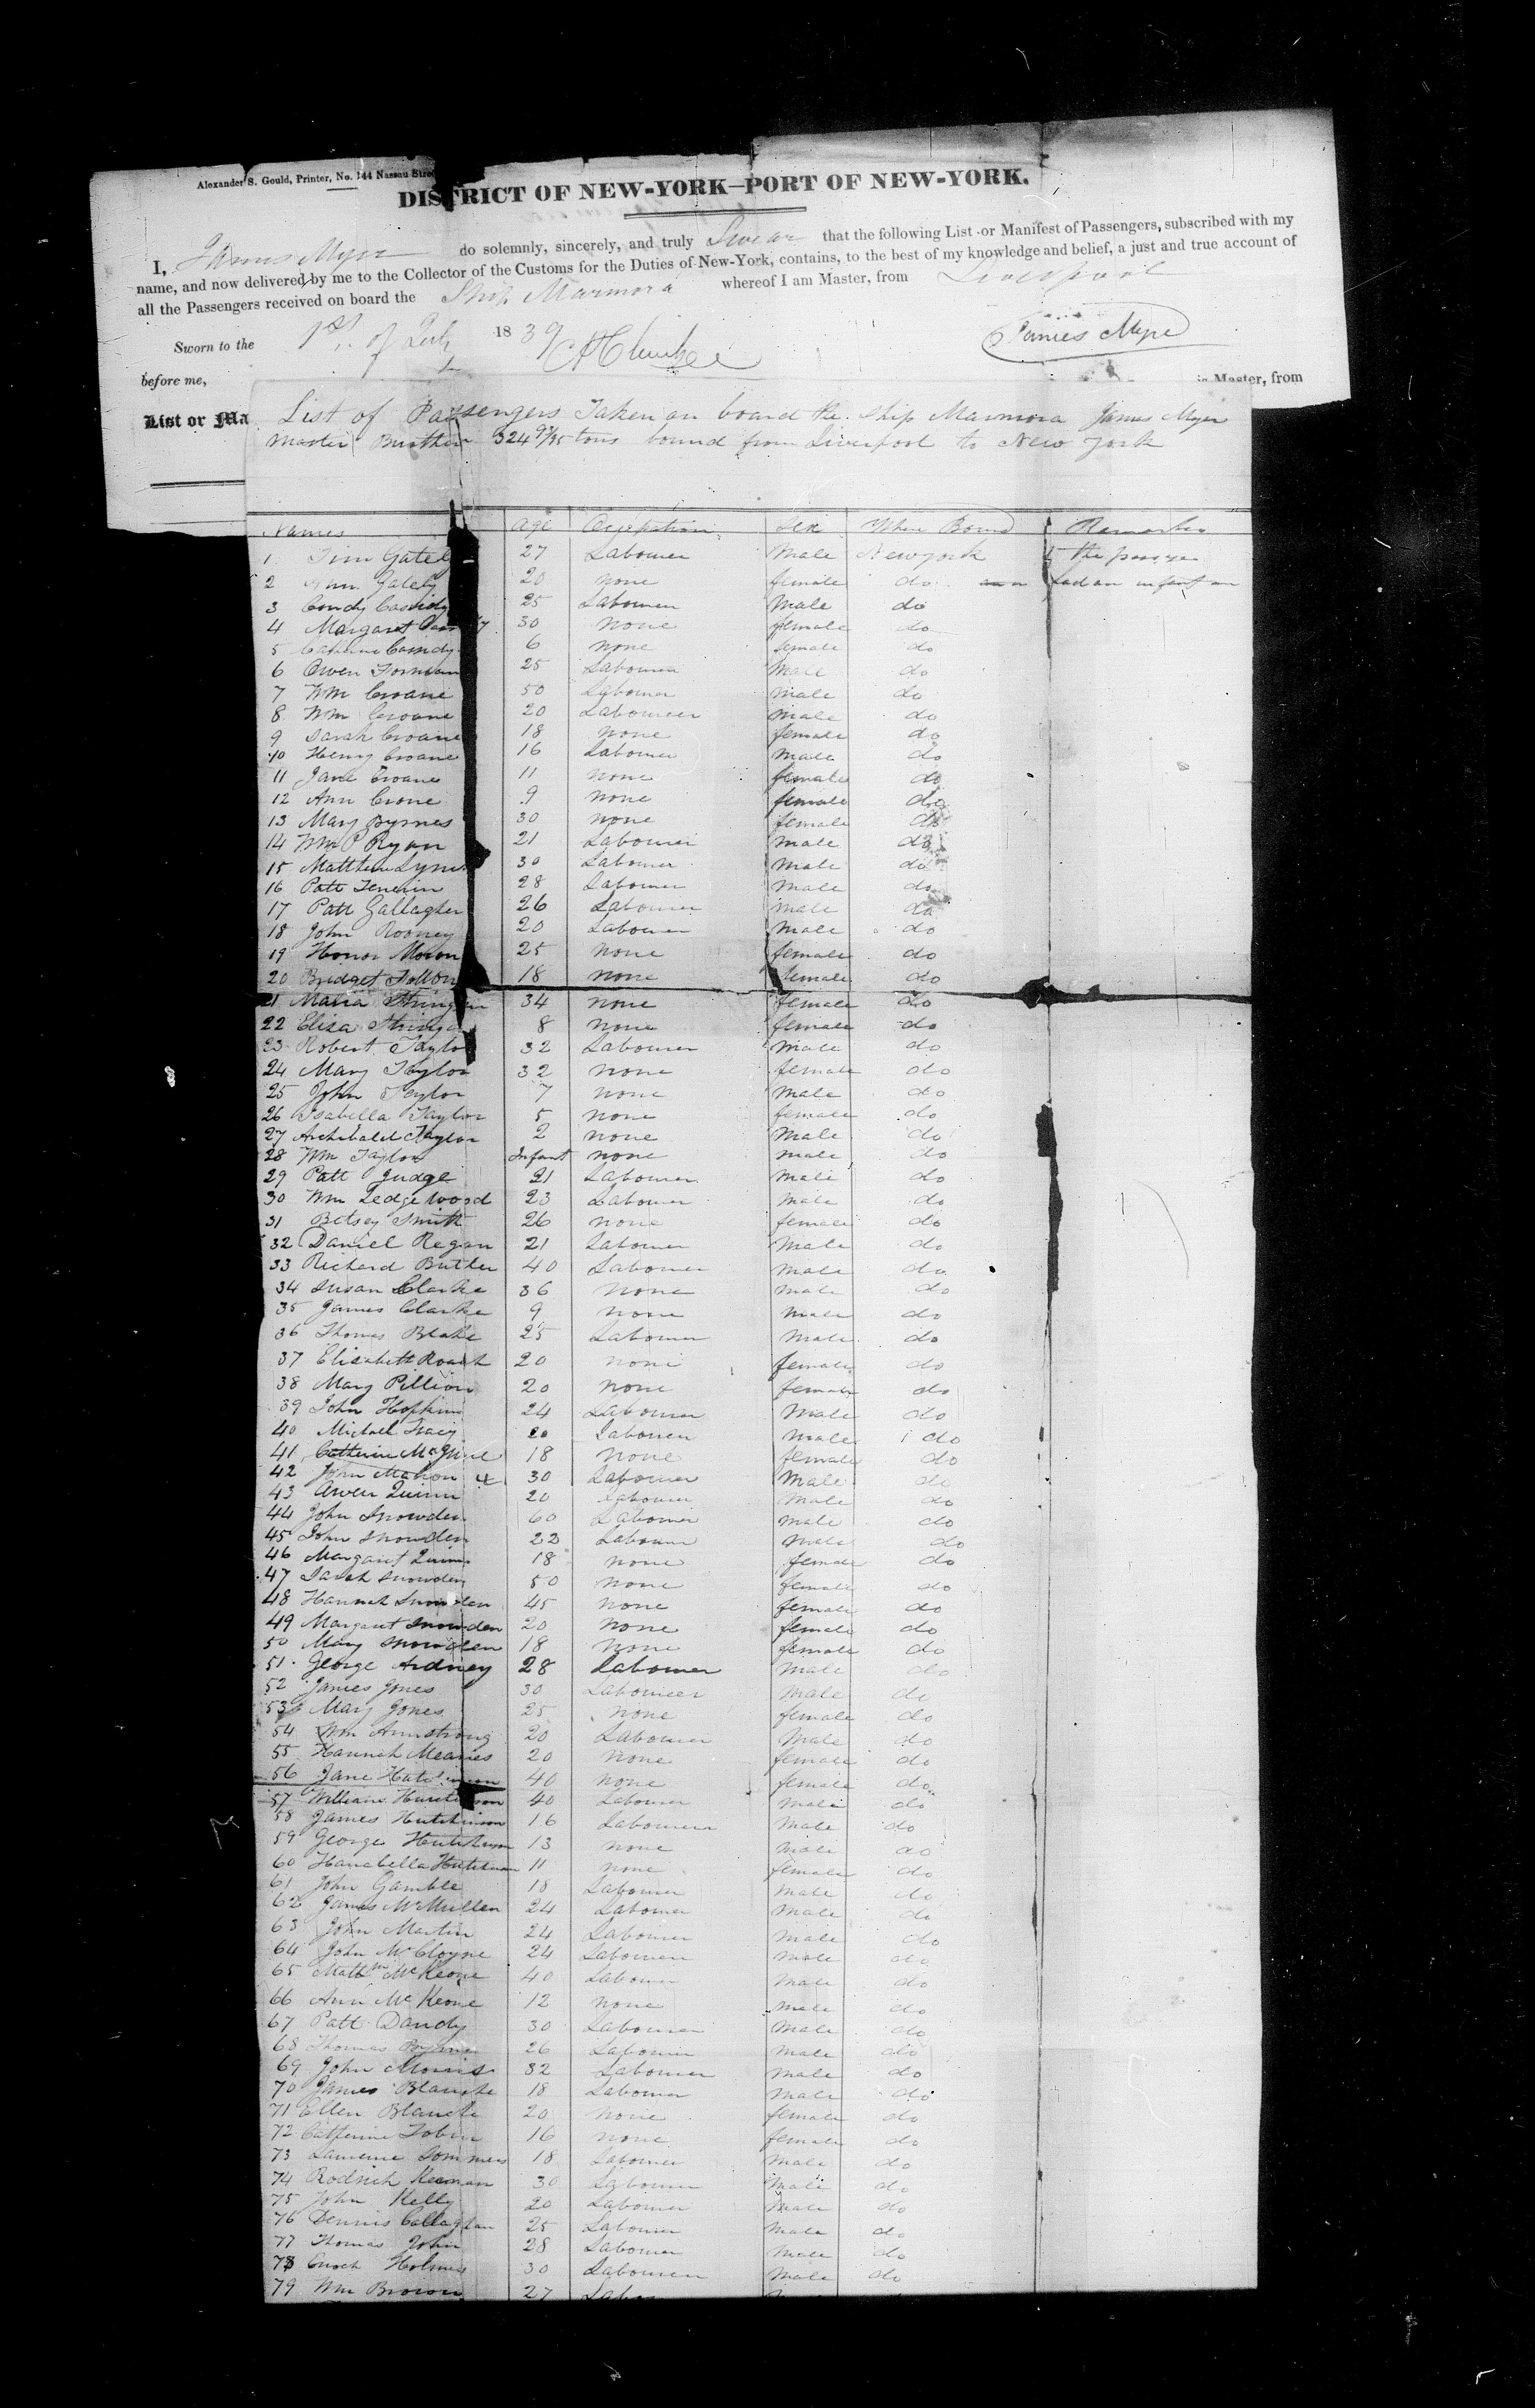 Alexander S. Gould, Printer, No. 144 Nassau Stree
DISTRICT OF NEW-YORK—PORT OF NEW-YORK.
I, James Myer do solemnly, sincerely, and truly Swear that the following List or Manifest of Passengers, subscribed with my
name, and now delivered by me to the Collector of the Customs for the Duties of New-York, contains, to the best of my knowledge and belief, a just and true account of
all the Passengers received on board the Ship Marmora whereof I am Master, from Liverpool
Sworn to the 1st of July 1839
James Myer
before me,
is Master, from
List or Ma
List of Passengers Taken on board the Ship Marmora James Myer
Master Burthen 324 9/95 tons bound from Liverpool to New York
Names Age Occupation Sex Where Bound Remarks
1 Tim Gately 27 Labourer Male New york the passage
2 Ann Gately 20 none female do had an infant on
3 Condy Cassidy 25 Labourer Male do
4 Margaret 30 none female do
5 Catherine Cassidy 6 none female do
6 Owen 25 Labourer Male do
7 Wm Croane 50 Labourer male do
8 Wm Croane 20 Labourer male do
9 Sarah Croane 18 none female do
10 Henry Croane 16 Labourer male do
11 Jane Croane 11 none female do
12 Ann Crone 9 none female do
13 Mary Byrnes 30 none female do
14 Wm P Ryan 21 Labourer male do
15 Matthew 30 Labourer Male do
16 Patt 28 Labourer Male do
17 Patt Gallagher 26 Labourer male do
18 John Rooney 20 Labourer Male do
19 Honor Moron 25 none female do
20 Bridget 18 none female do
21 Maria 34 none female do
22 Eliza 8 none female do
23 Robert Taylor 32 Labourer male do
24 Mary Taylor 32 none female do
25 John Taylor 7 none male do
26 Isabella Taylor 5 none female do
27 Archibald Taylor 2 none Male do
28 Wm Taylor Infant none male do
29 Patt Judge 21 Labourer Male do
30 Wm Ledgewood 23 Labourer Male do
31 Betsey Smith 26 none female do
32 Daniel Regan 21 Labourer Male do
33 Richard Butler 40 Labourer male do
34 Susan Clarke 36 none male do
35 James Clarke 9 none Male do
36 Thomas Blake 25 Labourer Male do
37 Elisabeth Roach 20 none female do
38 Mary Pillion 20 none female do
39 John Hopkins 24 Labourer Male do
40 Michael Tracy 20 Labourer male do
41 Catherine McGuire 18 none female do
42 John Mahon 30 Labourer Male do
43 Owen Quinn 20 Labourer male do
44 John Snowden 60 Labourer male do
45 John Snowden 22 Labourer male do
46 Margaret Quinn 18 none female do
47 Sarah Snowden 50 none female do
48 Hannah Snowden 45 none female do
49 Margaret Snowden 20 none female do
50 Mary Snowden 18 none female do
51 George Ardney 28 Labourer male do
52 James Jones 30 Labourer male do
53 Mary Jones 25 none female do
54 Wm Armstrong 20 Labourer Male do
55 Hannah Meanies 20 none female do
56 Jane 40 none female do
57 William 40 Labourer male do
58 James Hutchinson 16 Labourer Male do
59 George Hutchinson 13 none male do
60 Hanabella Hutchinson 11 none female do
61 John Gamble 18 Labourer male do
62 James McMullen 24 Labourer Male do
63 John Martin 24 Labourer male do
64 John McCloyne 24 Labourer male do
65 Matthw McKeone 40 Labourer male do
66 Ann McKeone 12 none male do
67 Patt Dandy 30 Labourer Male do
68 Thomas Byrne 26 Labourer male do
69 John Morris 32 Labourer Male do
70 James Blanche 18 Labourer male do
71 Ellen Blanche 20 none female do
72 Catherine Tobin 16 none female do
73 Lawrence Sommers 18 Labourer male do
74 Rodrick Keenan 30 Labourer Male do
75 John Kelly 20 Labourer Male do
76 Dennis Callaghan 25 Labourer Male do
77 Thomas John 28 Labourer Male do
78 Enoch Holmes 30 Labourer Male do
79 Wm Brown 27